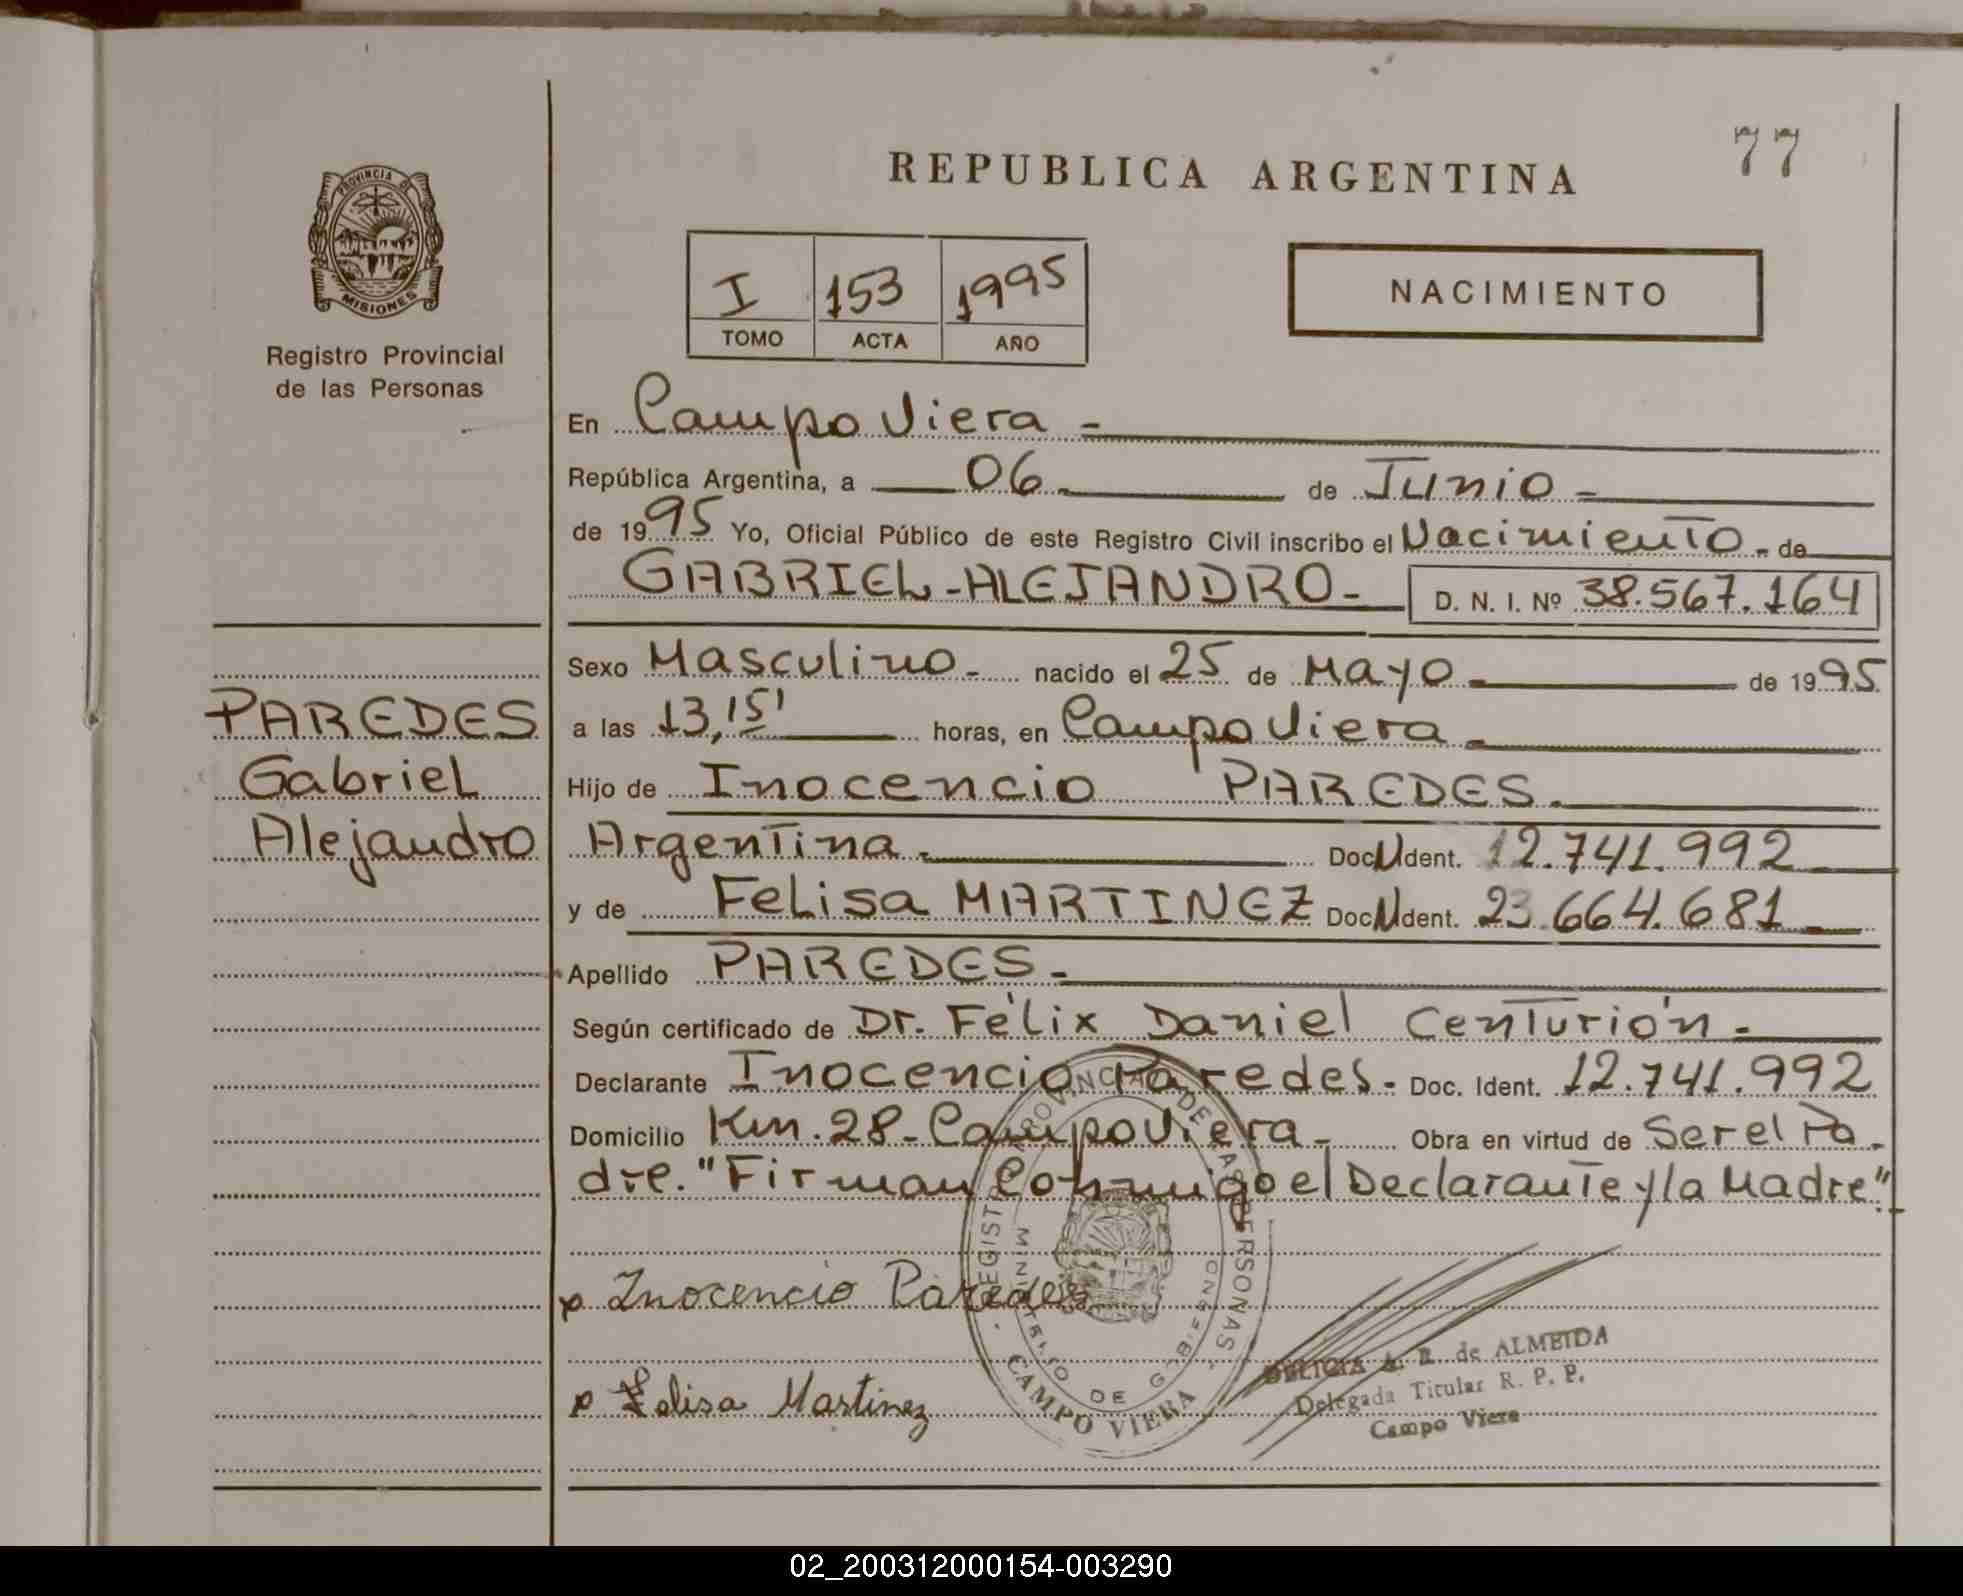 77
REPUBLICA ARGENTINA
PROVINCIA DE
MISIONES
Registro Provincial
de las Personas
I 153 1995
TOMO ACTA AÑO
NACIMIENTO
En Campo Viera -
República Argentina, a 06 - de Junio -
de 1995 Yo, Oficial Público de este Registro Civil inscribo el Nacimiento - de
GABRIEL-ALEJANDRO- D. N. I. Nº 38.567.164
Sexo Masculino - nacido el 25 de Mayo - de 1995
a las 13,15' horas, en Campo Viera -
Hijo de Inocencio PAREDES.
Argentina - Doc N Ident. 12.741.992
y de Felisa MARTINEZ Doc N Ident. 23.664.681
Apellido PAREDES -
Según certificado de Dr. Félix Daniel Centurión -
Declarante Inocencio Paredes - Doc. Ident. 12.741.992
Domicilio Km. 28 - Campo Viera - Obra en virtud de Ser el Pa-
dre. "Firman Conmigo el Declarante y la Madre".
PAREDES
Gabriel
Alejandro
Inocencio Paredes
Felisa Martinez
REGISTRO PROVINCIAL DE LAS PERSONAS
MINISTERIO DE GOBIERNO
CAMPO VIERA
DELICIA A. R. de ALMEIDA
Delegada Titular R. P. P.
Campo Viera
02_200312000154-003290